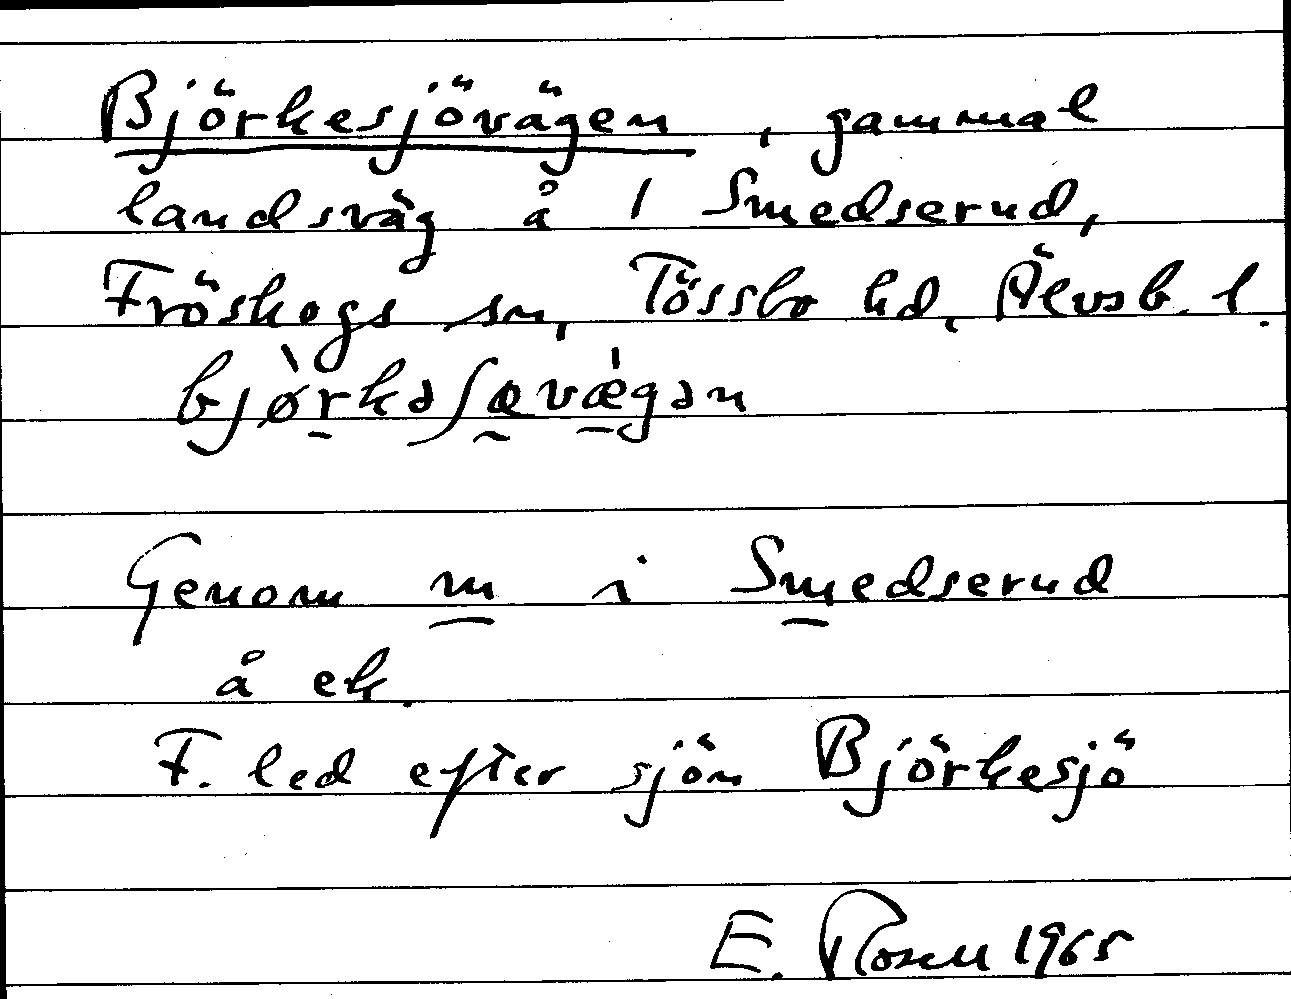 Björkesjövägen, gammal
landsväg å / Smedserud,
Fröskogs sn, Tössbo hd, Älvsb. l.
bjø̀rkəʃævǽgən
Genom m i Smedserud
å ek.
F. led efter sjön Björkesjö
E. Rosell 1965